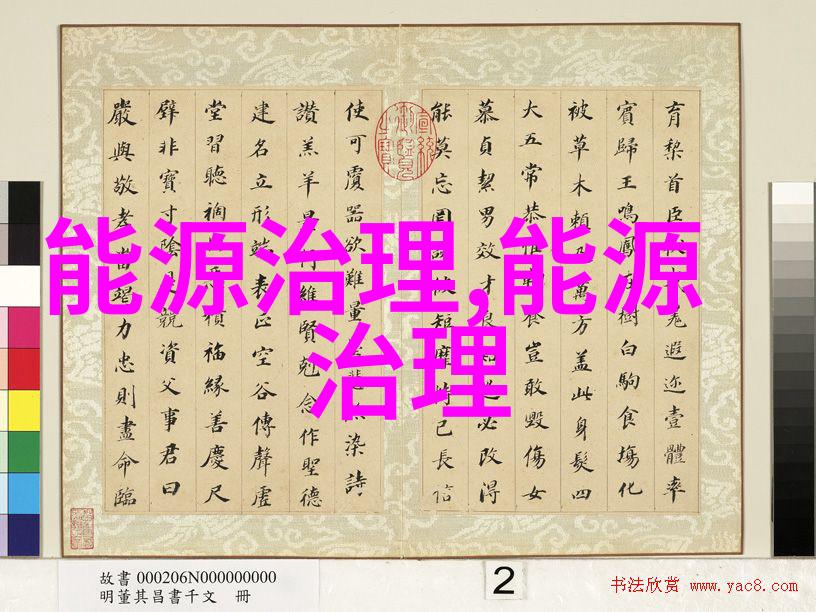 育黎首臣伏羌遐迩壹體率
賓歸王鳴鳳在樹白駒食塲化
被草木賴及萬方盖此身髮四
大五常恭惟豈敢毀傷女
慕貞絜男效才良必改得
能莫忘罔短靡恃己長信
使可覆器欲難量染詩
讚羔羊景行維賢剋念作聖德
建名立形端表正空谷傳聲虛
堂習聽禍積福緣善慶尺
璧非寶寸陰是競資父事君曰
嚴與敬孝當竭力忠則盡命臨
能源治理,能源
治理
故書 000206N000000000
明董其昌書千文 冊
2
书法欣赏 www.yac8.com